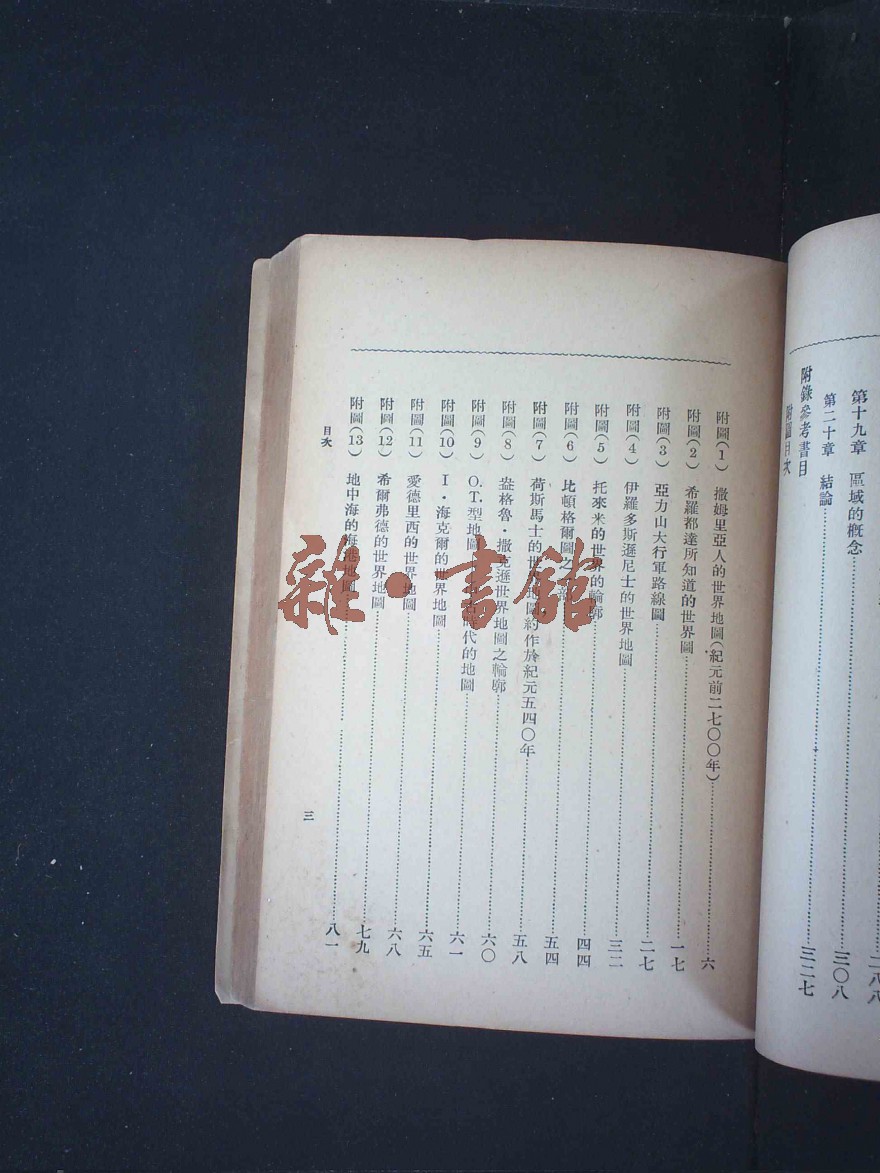 二八八
第十九章 區域的概念……三〇八
第二十章 結論……三二七
附錄參考書目
附圖目次
附圖(1) 撒姆里亞人的世界地圖(紀元前二七〇〇年)……六
附圖(2) 希羅都達所知道的世界圖……一七
附圖(3) 亞力山大行軍路線圖……二七
附圖(4) 伊羅多斯遜尼士的世界地圖……三二
附圖(5) 托來米的世界的輪廓……四四
附圖(6) 比頓格爾圖之一部……五四
附圖(7) 荷斯馬士的世界地圖約作於紀元五四〇年……五八
附圖(8) 盎格魯·撒克遜世界地圖之輪廓……六〇
附圖(9) O.T.型地圖 古時代的地圖……六一
附圖(10) I·海克爾的世界地圖……六五
附圖(11) 愛德里西的世界地圖……六八
附圖(12) 希爾弗德的世界地圖……七九
附圖(13) 地中海的海港地圖……八一
目次
三
雜·書館